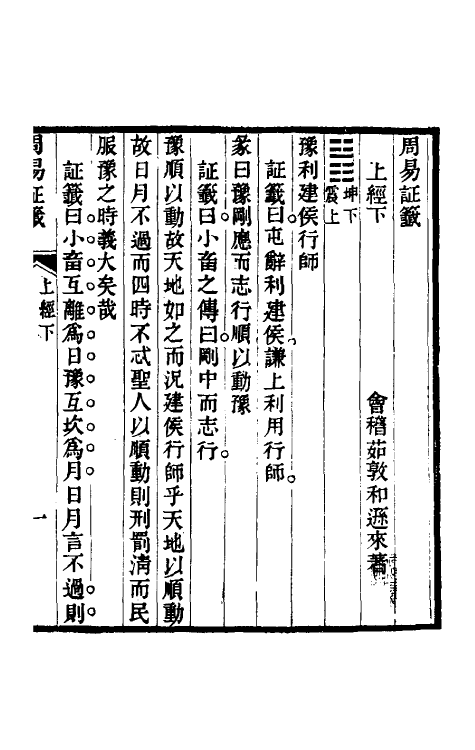 周易証籤
上經下　會稽茹敦和遜來著
坤下
震上
豫利建侯行師
証籤曰屯辭利建侯謙上利用行師
彖曰豫剛應而志行順以動豫
証籤曰小畜之傳曰剛中而志行
豫順以動故天地如之而況建侯行師乎天地以順動
故日月不過而四時不忒聖人以順動則刑罰清而民
服豫之時義大矣哉
証籤曰小畜互離爲日豫互坎爲月日月言不過則
周易証籤　上經下　一